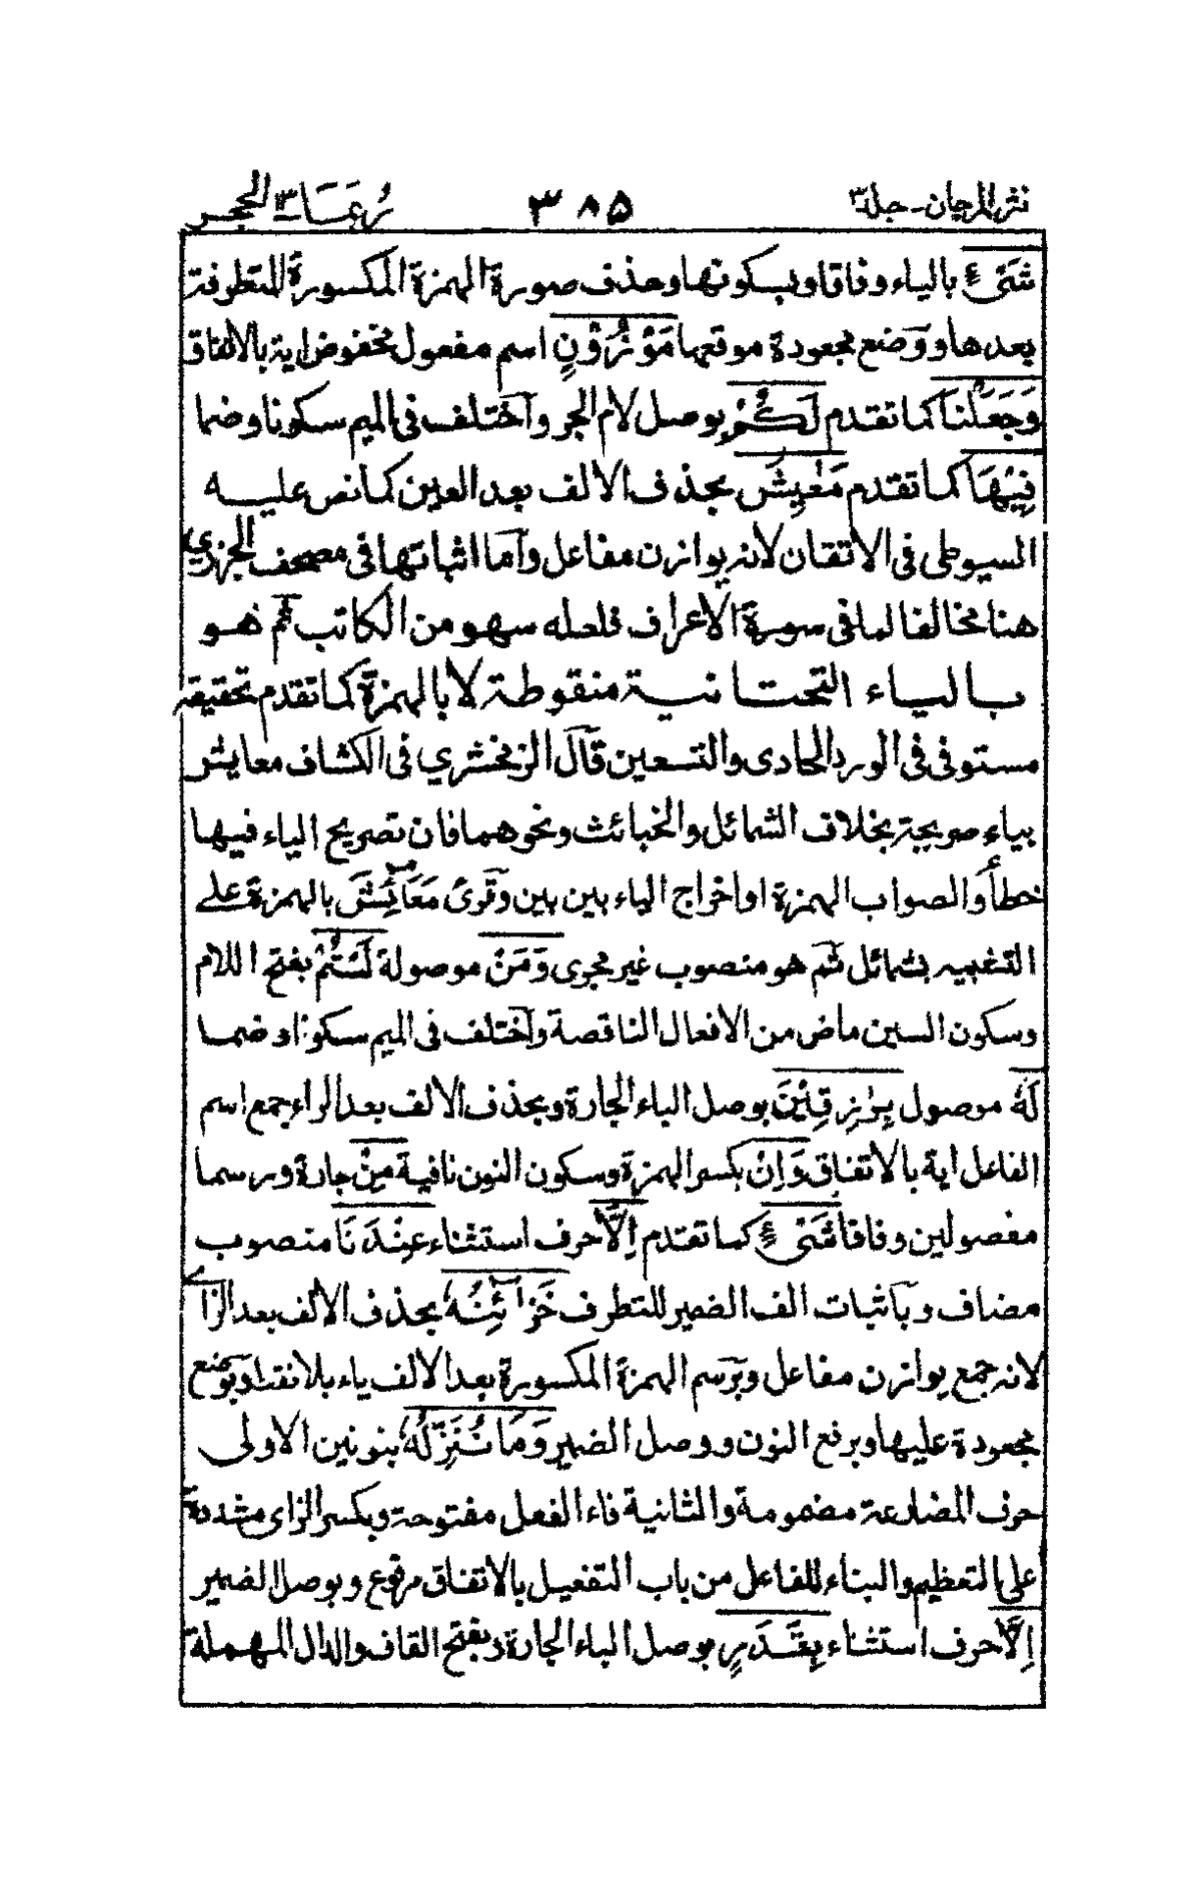 نثر المرجان - جلد ٣ ٣٨٥ رُبَمَا ١٣ الحجر
شَىْءٍ بالياء وفاقا وبسكونها وحذف صورة الهمزة المكسورة المتطرفة
بعدها ووضع مجعودة موقعها مَوْزُوْنٍ اسم مفعول مخفوض اية بالاتفاق
وَجَعَلْنَا كما تقدم لَكُمْ بوصل لام الجر واختلف فى الميم سكونا وضما
فِيْهَا كما تقدم مَعٰيِشَ بحذف الالف بعد العين كما نص عليه
السيوطى فى الاتقان لانه يوازن مفاعل واما اثباتها فى مصحف الجزري
هنا مخالفا لما فى سورة الاعراف فلعله سهو من الكاتب ثم هو
بالياء التحتانية منقوطة لا بالهمزة كما تقدم تحقيقه
مستوفى فى الورد الحادى والتسعين قال الزمخشري فى الكشاف معايش
بياء صريحة بخلاف الشمائل والخبائث ونحوهما فان تصريح الياء فيها
خطأ والصواب الهمزة او اخراج الياء بين بين وقرئ مَعَائِشَ بالهمزة على
التشبيه بشمائل ثم هو منصوب غير مجرى وَمَنْ موصولة لَسْتُمْ بفتح اللام
وسكون السين ماض من الافعال الناقصة واختلف فى الميم سكونا وضما
لَهٗ موصول بِرٰزِقِيْنَ بوصل الباء الجارة وبحذف الالف بعد الراء جمع اسم
الفاعل اية بالاتفاق وَاِنْ بكسر الهمزة وسكون النون نافية مِنْ جارة ورسما
مفصولين وفاقا شَىْءٍ كما تقدم اِلَّا حرف استثناء عِنْدَنَا منصوب
مضاف وباثبات الف الضمير للتطرف خَزَآئِنُهٗ بحذف الالف بعد الزاے
لانه جمع يوازن مفاعل وبرسم الهمزة المكسورة بعد الالف ياء بلا نقط وبوضع
مجعودة عليها وبرفع النون ووصل الضمير وَمَا نُنَزِّلُهٗ بنونين الاولى
حرف المضارعة مضمومة والثانية فاء الفعل مفتوحة وبكسر الزاى مشددة
على التعظيم والبناء للفاعل من باب التفعيل بالاتفاق مرفوع وبوصل الضمير
اِلَّا حرف استثناء بِقَدَرٍ بوصل الباء الجارة وبفتح القاف والدال المهملة